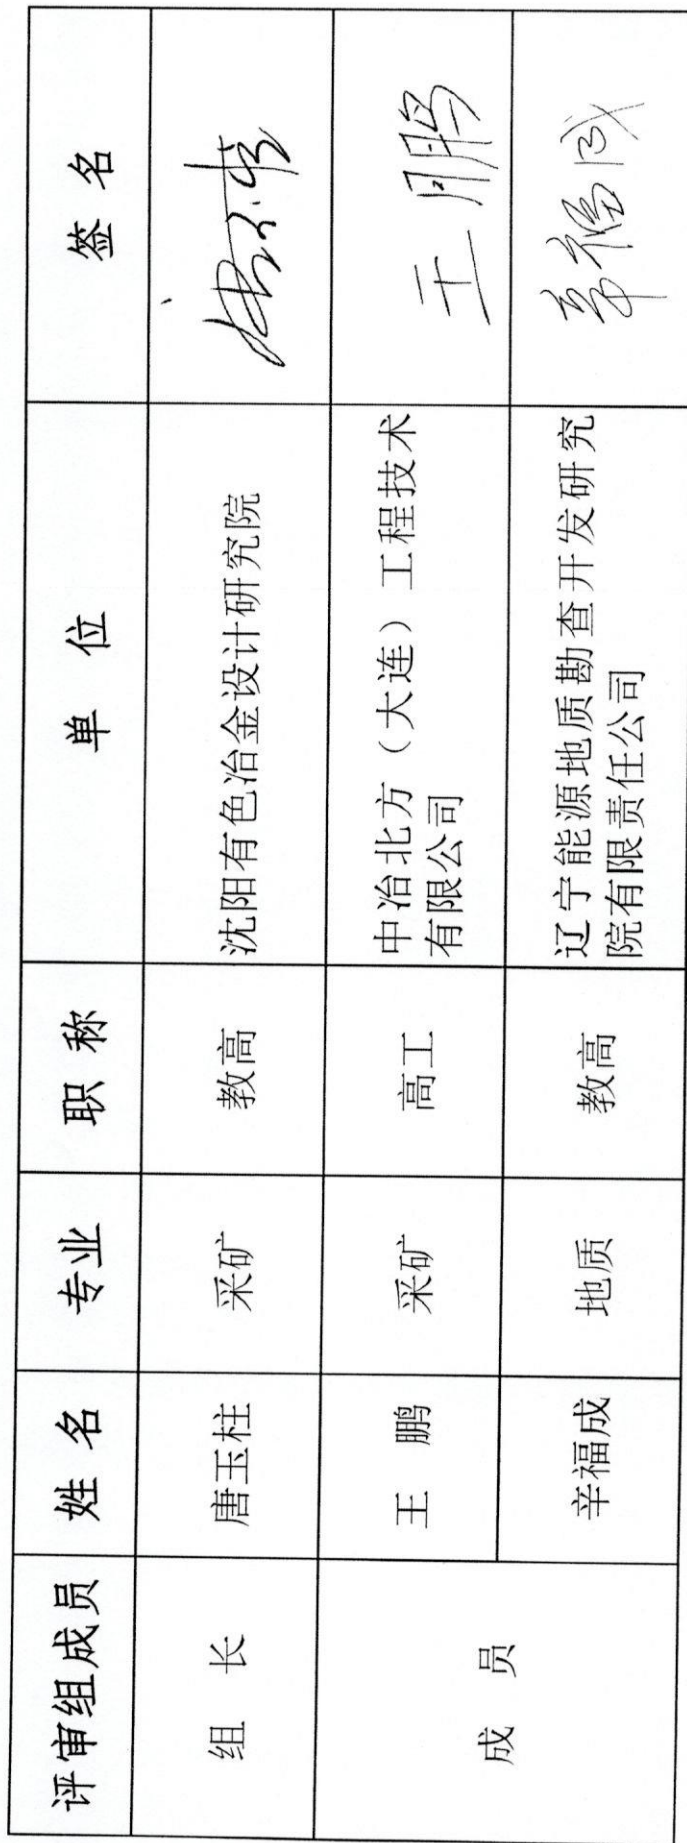 评审组成员 姓 名 专业 职 称 单 位 签 名
组 长 唐玉柱 采矿 教高 沈阳有色冶金设计研究院
成 员 王 鹏 采矿 高工 中冶北方（大连）工程技术 王鹏
有限公司
辛福成 地质 教高 辽宁能源地质勘查开发研究 辛福成
院有限责任公司